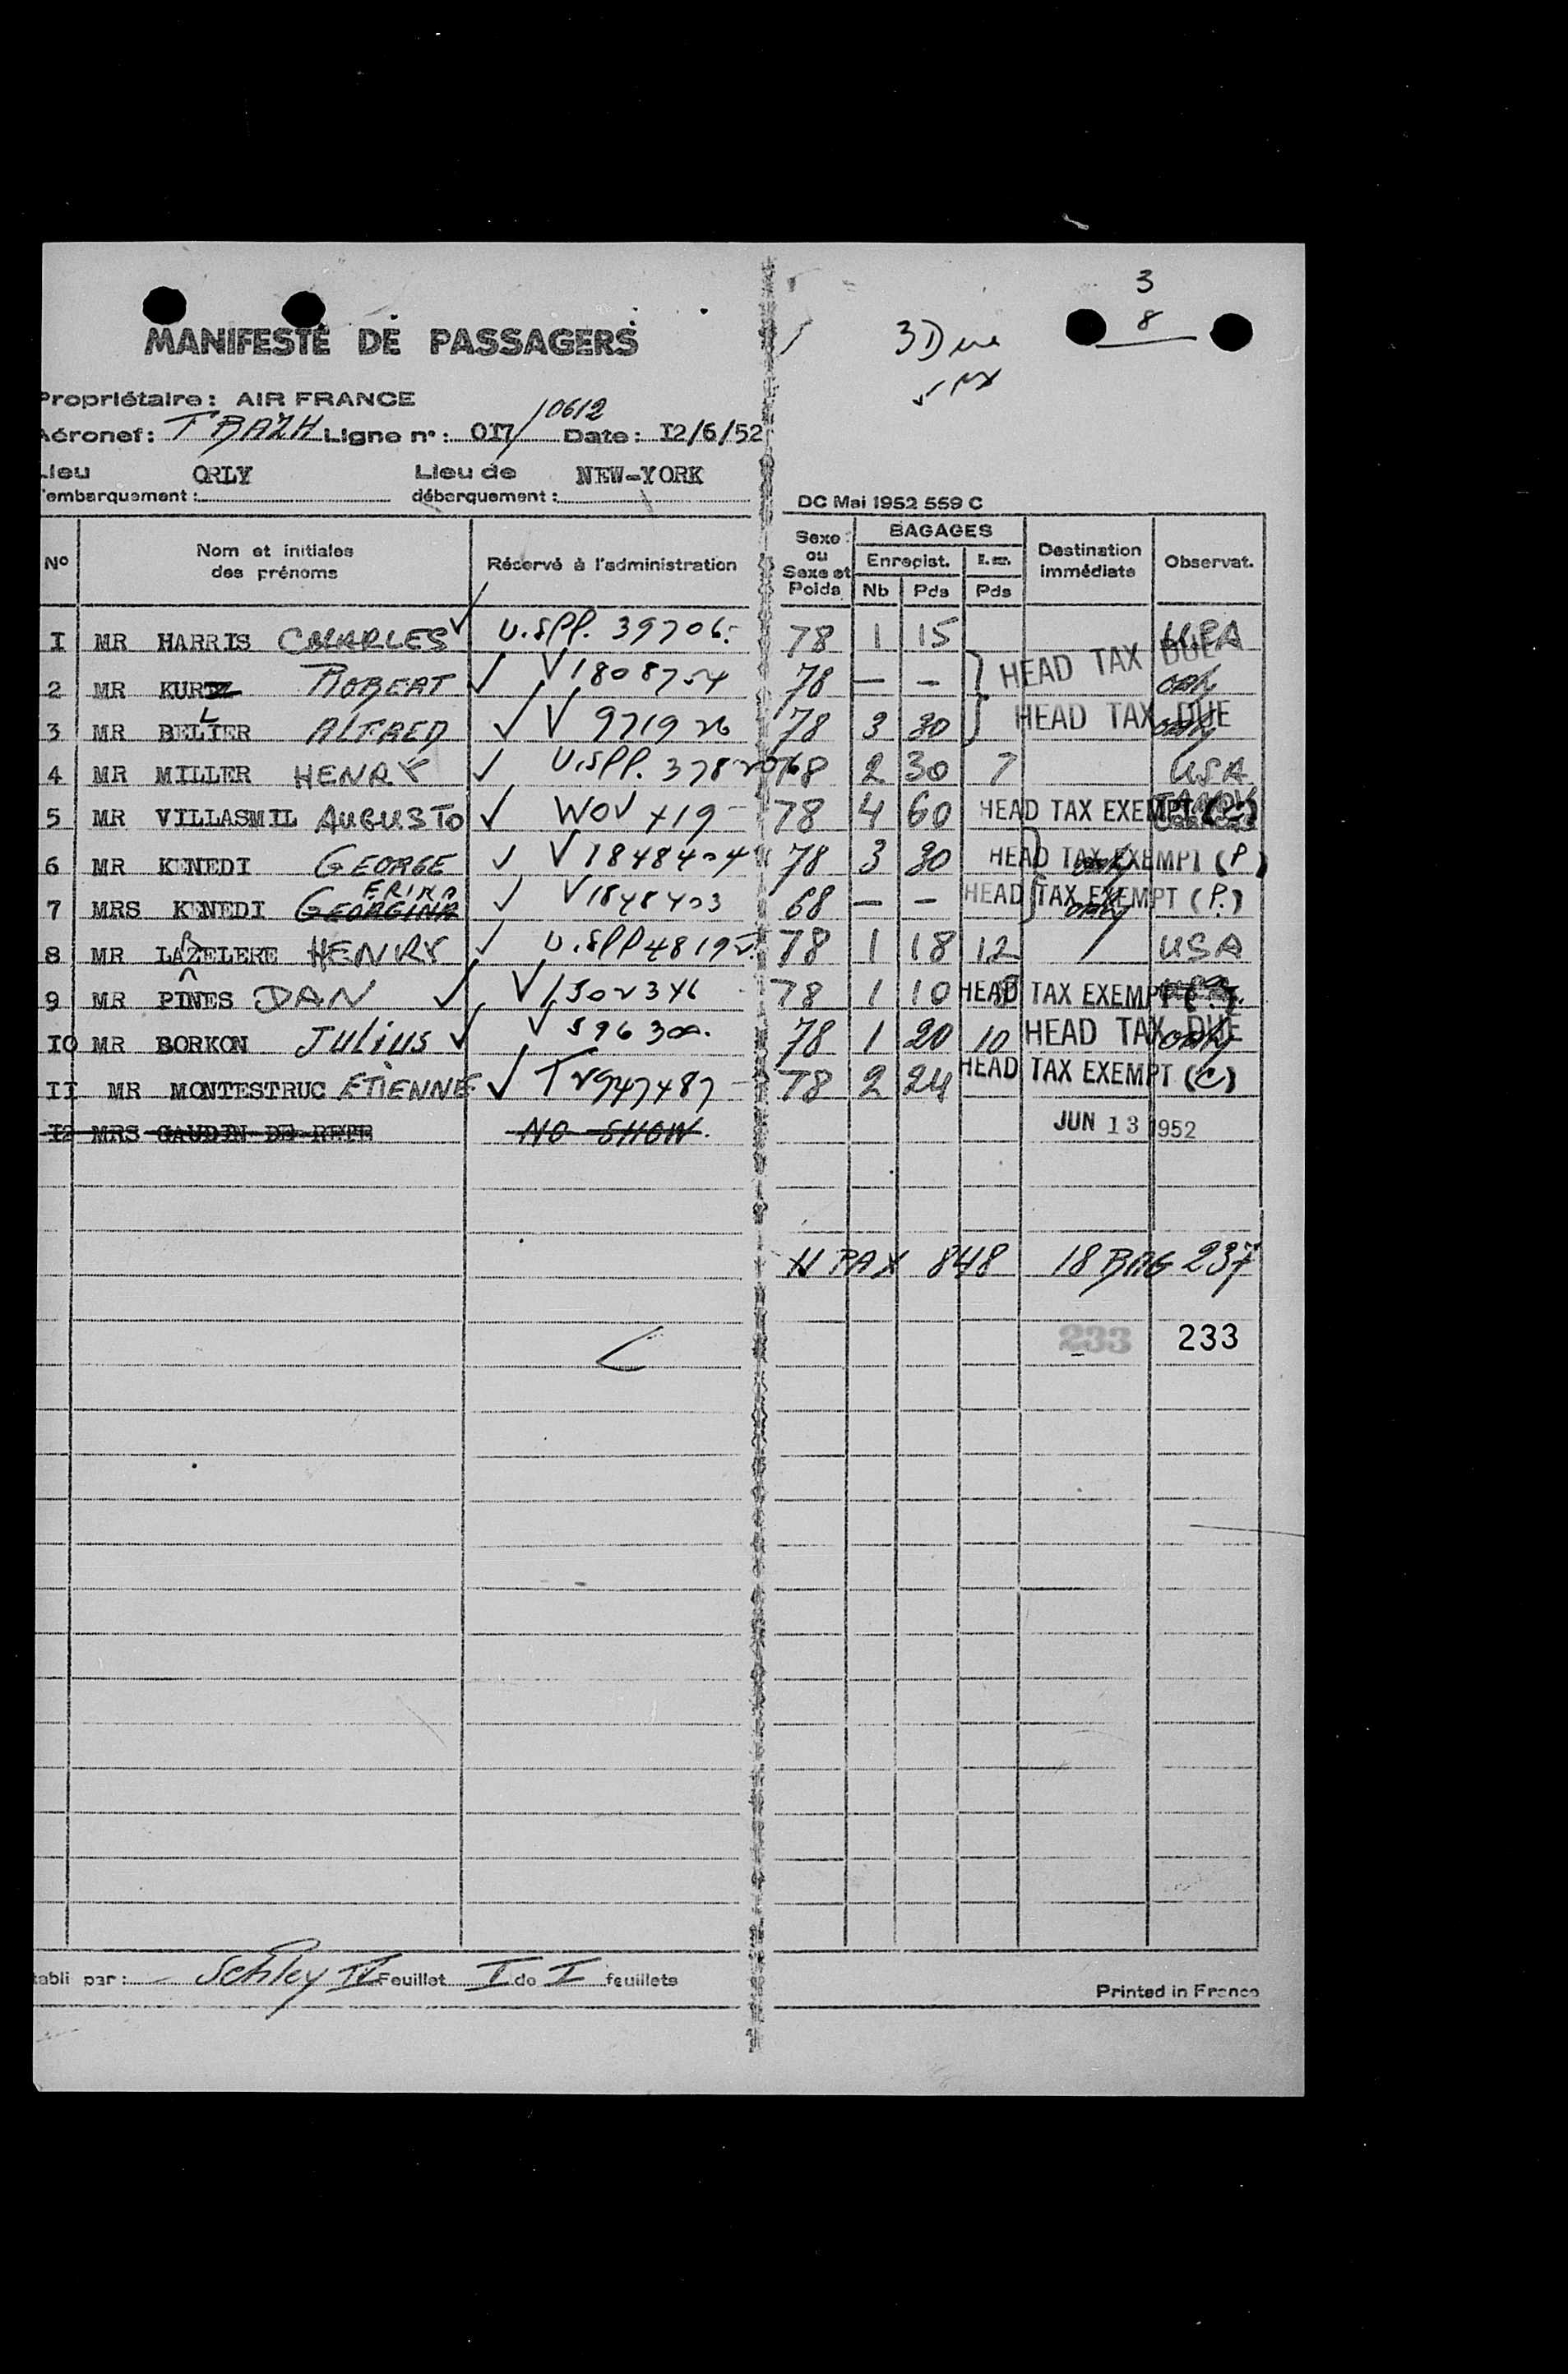 3
8
3 Due
MANIFESTE DE PASSAGERS
Propriétaire: AIR FRANCE
Aéronef: Ligne n°: 017/0612 Date: I2/6/52
Lieu d'embarquement: ORLY Lieu de débarquement: NEW-YORK
DC Mai 1952 559 C
N° Nom et initiales des prénoms Réservé à l'administration Sexe ou Sexe et Poids BAGAGES Enregist. Nb Pds Pds Destination immédiate Observat.
I MR HARRIS CHARLES U.S.PP. 39706 78 1 15 USA
2 MR KURTZ ROBERT V 78 — — HEAD TAX DUE only
3 MR BELLIER ALFRED V 78 3 30 HEAD TAX DUE only
4 MR MILLER HENRY U.S.PP. 68 2 30 7 USA
5 MR VILLASMIL AUGUSTO 78 4 60 HEAD TAX EXEMPT
6 MR KENEDI GEORGE V 1848404 78 3 30 HEAD TAX EXEMPT (P.)
7 MRS KENEDI GEORGINA ERIKA V 1848403 68 — — HEAD TAX EXEMPT (P.)
8 MR LARZELERE HENRY U.S.PP 78 1 18 12 / USA
9 MR PINES DAN V 78 1 10 HEAD TAX EXEMPT
IO MR BORKON JULIUS V 78 1 20 10 HEAD TAX DUE only
II MR MONTESTRUC ETIENNE 78 2 24 HEAD TAX EXEMPT (C)
I2 MRS GAUDIN DE NO SHOW
JUN 13 1952
11 PAX 848 18 BAG 237
233 233
établi par: Feuillet I de I feuillets
Printed in France